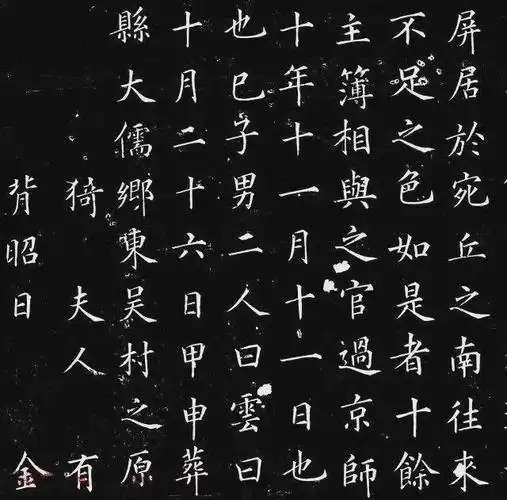 屏居於宛丘之南往來
不足之色如是者十餘
主簿相與之官過京師
十年十一月十一日也
也巳子男二人曰雲曰
十月二十六日甲申葬
縣大儒鄉東吴村之原
猗 夫人 有
背昭日 金